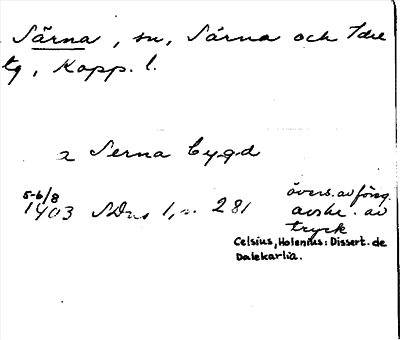 Särna, sn, Särna och Idre
tg, Kopp. l.
a Serna bygd
5-6/8
1403 SDns 1, s. 281
övers. av förg.
avskr. av
tryck
Celsius, Holenius: Dissert. de
Dalekarlia.